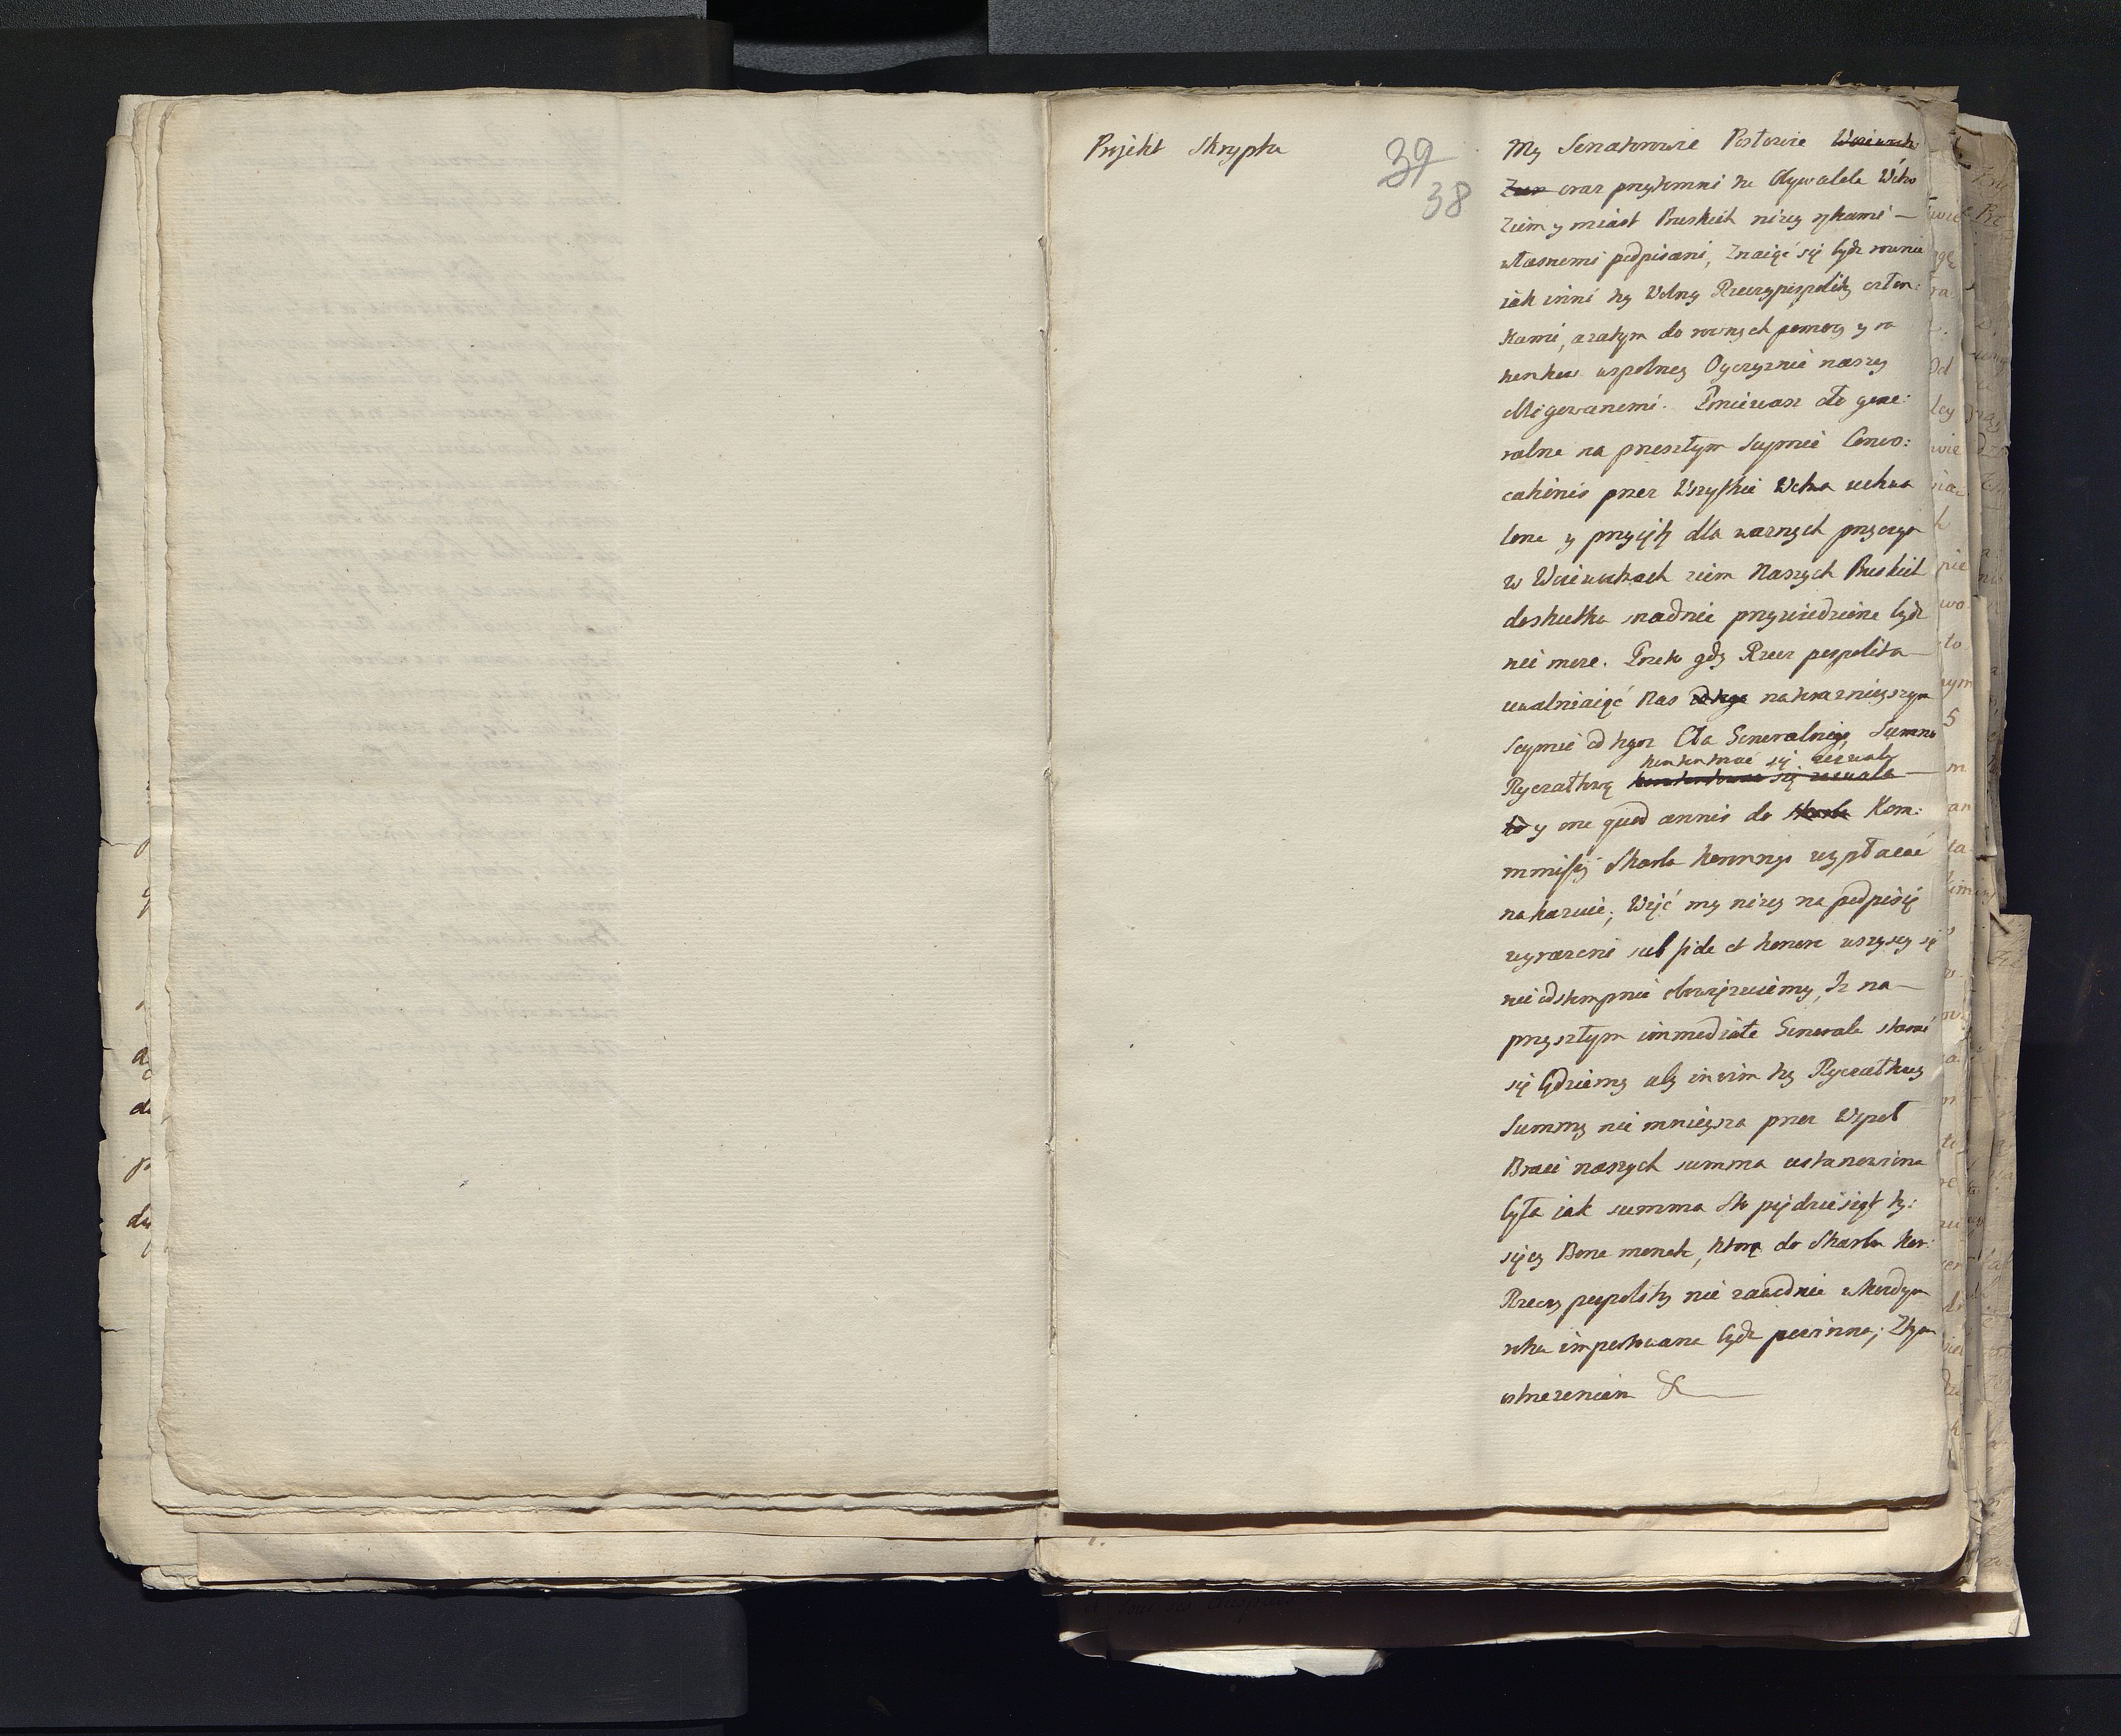 Projekt Skryptu
39
38
My Senatorowie Posłowie Woiewodz:
Ziem oraz przytomni tu Obywatele Wdztw
Ziem y miast Pruskich niżey rękami —
własnemi podpisani, Znaiąc się bydz rownie
iak inni tey Wolney Rzeczypospolitey człon:
kami, a zatym do rownych pomocy y ra
tunkow wspolney Oyczyznie naszey
obligowanemi. Ponieważ cło gene:
ralne na przeszłym Seymie Convo:
cationis przez Wszystkie Wdztwa uchwa
lone y przyięte dla ważnych przyczyn
w Woiewodztwach ziem Naszych Pruskich
do skutku snadnie przywiedzione bydz
nie może. Przeto gdy Rzecz pospolita —
uwalniaiąc Nas od tego na teraznieyszym
Seymie od tego Cła Generalnego Summą
kontentować się zezwala
Ryczałtową kontentować się zezwala —
to y one quod annis do Skarbu Kom:
mmissyi Skarbu koronnego wypłacać
nakazuie; Więc my niżey na podpisie
wyrażeni sub fide et honore wszyscy się
nieodstempnie obowięzuiemy, Iż na —
przyszłym immediate Generale starać
się będziemy aby in vim tey Ryczałtowey
Summy nie mnieysza przez Wspoł
Braci naszych summa ustanowiona
była iak summa Sto pięćdziesiąt ty:
sięcy Bonae monetae, ktorą do Skarbu Kor:
Rzeczy pospolitey nie zawodnie w każdym
roku importowana bydz powinna; Z tym
ostrzezeniem &